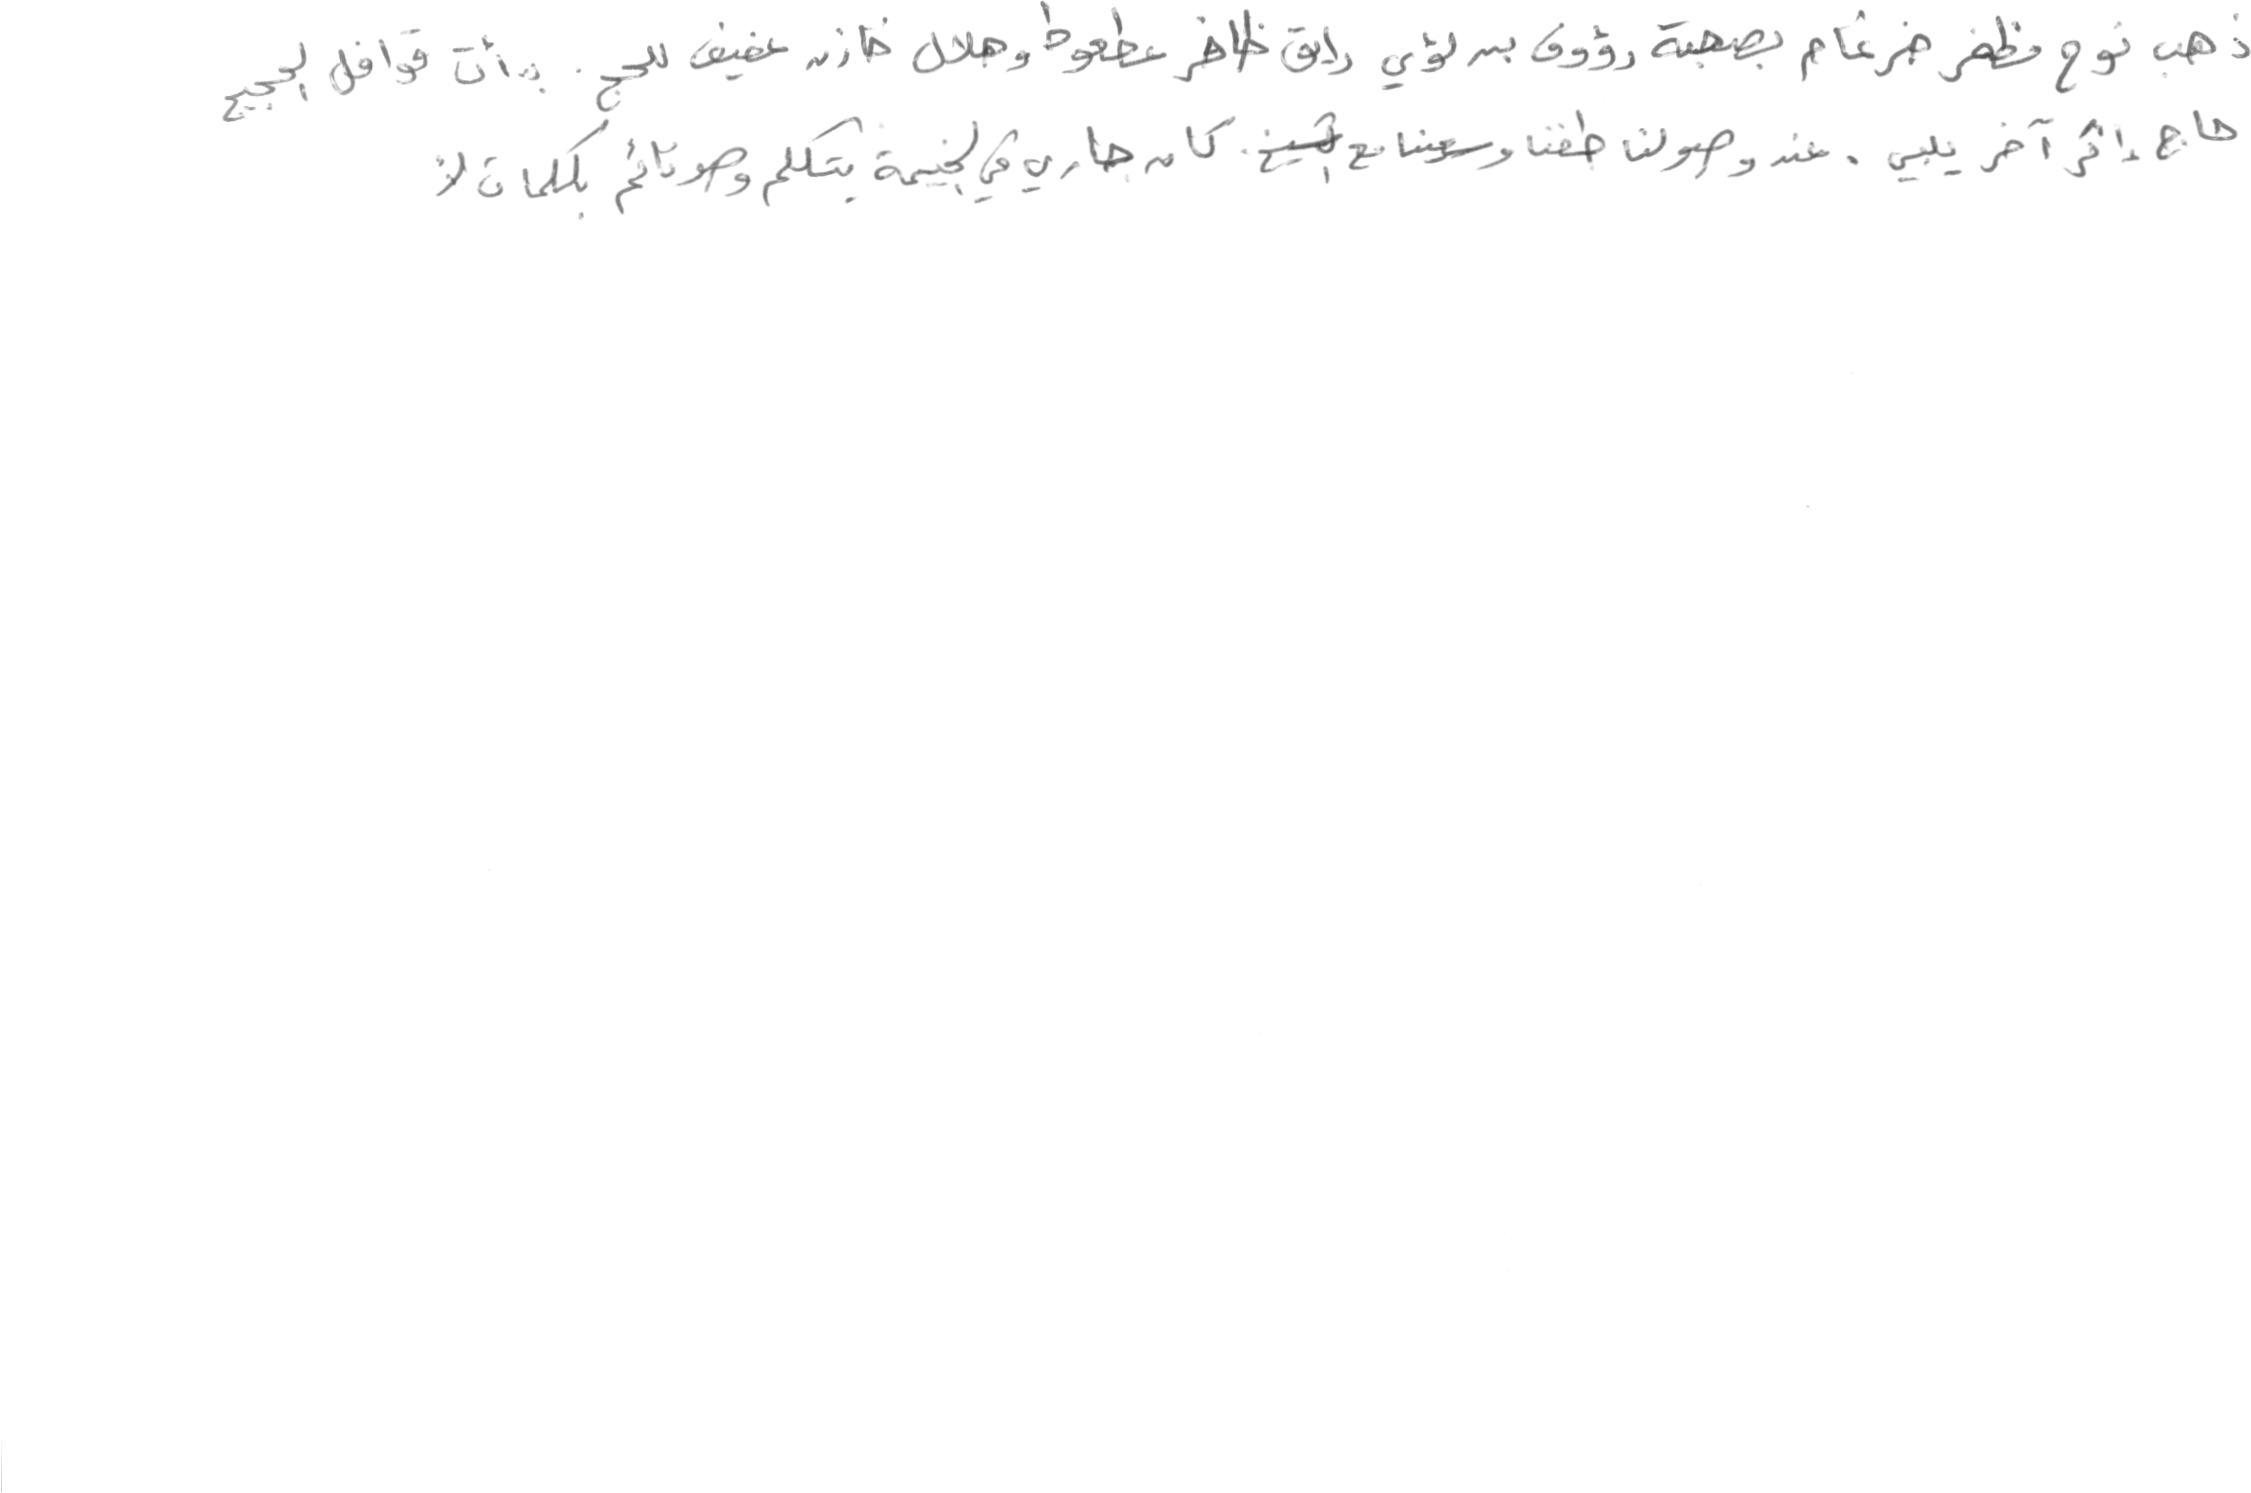 ذهب نوح مظفر ضرغام بصحبة رؤوف بن لؤي رايق ظافر عطعوط وهلال خازن عفيف للحج. بدأت قوافل الحجيج
حاج إثر آخر يلبي. عند وصولنا طفنا وسعينا مع الشيخ. كان جاري في الخيمة يتكلم وهو نائم بكلمات لا